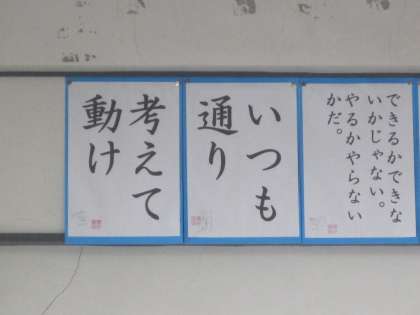 できるかできな
いかじゃない。
やるかやらない
かだ。
いつも
通り
考えて
動け